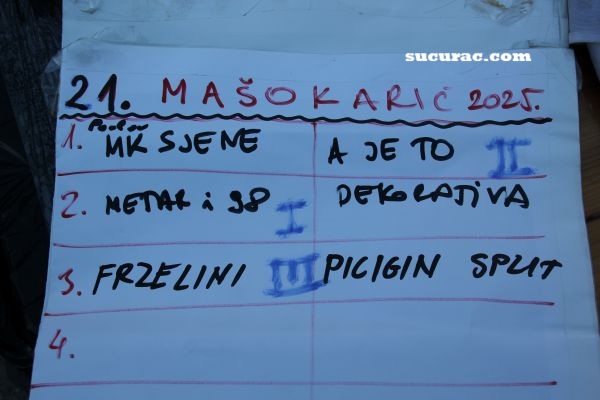 sucurac.com
21. MAŠOKARIĆ 2025.
1. MK SJENE A JE TO II
2. METAR i 98 I DEKORATIVA
3. FRZELINI III PICIGIN SPLIT
4.